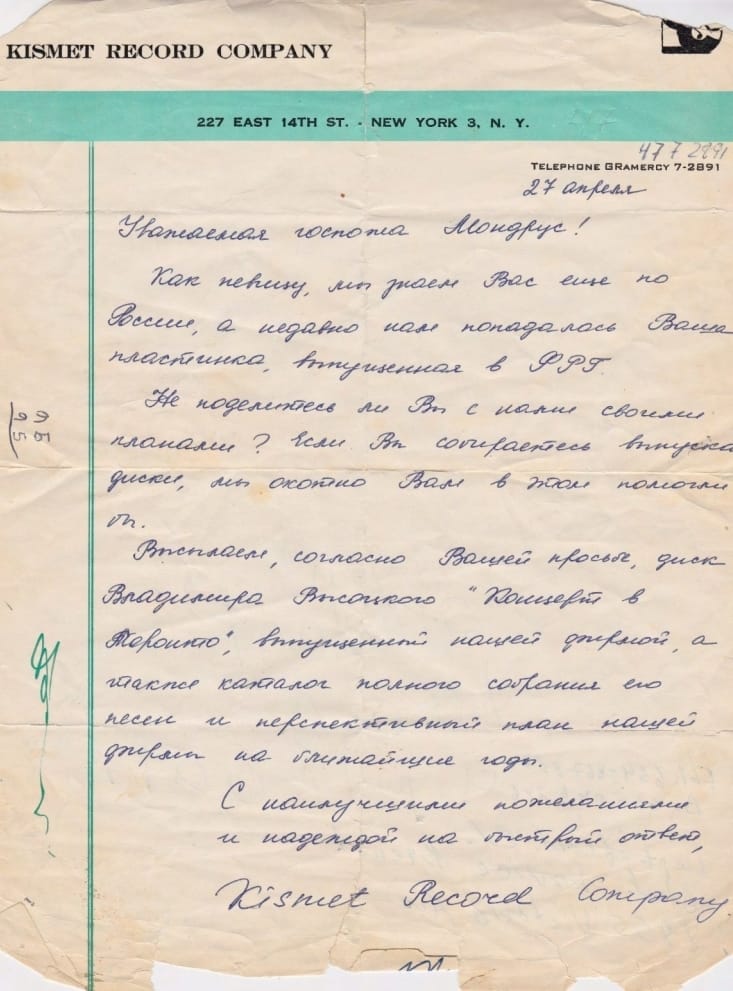 KISMET RECORD COMPANY
227 EAST 14TH ST. - NEW YORK 3, N. Y.
477 2891
TELEPHONE GRAMERCY 7-2891
27 апреля
Уважаемая госпожа Мондрус!
Как певицу, мы знаем Вас еще по
России, а недавно нам попадалась Ваша
пластинка, выпущенная в ФРГ.
Не поделитесь ли Вы с нами своими
планами? Если Вы собираетесь выпуска
диски, мы охотно Вам в этом помогли
бы.
Высылаем, согласно Вашей просьбе, диск
Владимира Высоцкого "Концерт в
Торонто", выпущенный нашей фирмой, а
также каталог полного собрания его
песен и перспективный план нашей
фирмы на ближайшие годы.
С наилучшими пожеланиями
и надеждой на быстрый ответ,
Kismet Record Company